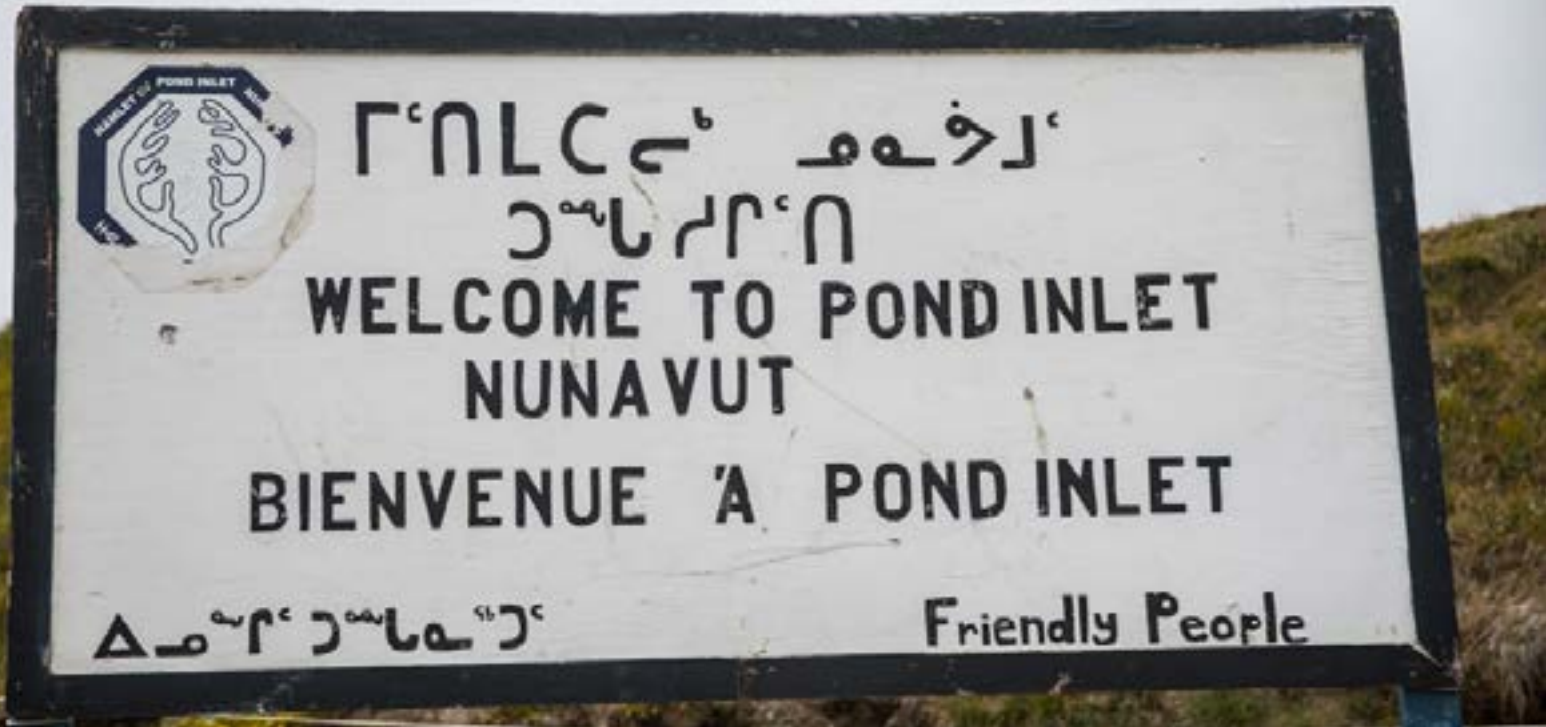 HAMLET OF POND INLET
ᒥᑦᑎᒪᑕᓕᒃ ᓄᓇᕘᒧᑦ
ᑐᙵᓱᒋᑦᑎ
WELCOME TO POND INLET
NUNAVUT
BIENVENUE À POND INLET
ᐃᓄᖏᑦ ᑐᙵᓇᖅᑐᑦ
Friendly People